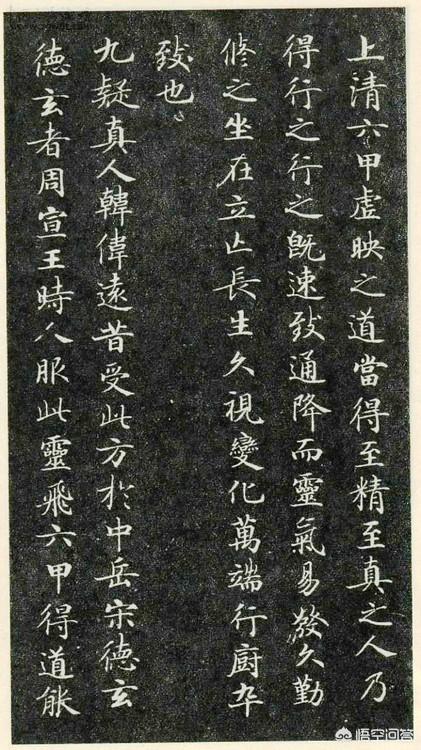 上清六甲虚映之道當得至精至真之人乃
得行之行之既速致通降而靈氣易發久勤
修之坐在立亡長生久視變化萬端行廚卒
致也
九疑真人韓偉遠昔受此方於中岳宋德玄
德玄者周宣王時人服此靈飛六甲得道能
悟空问答